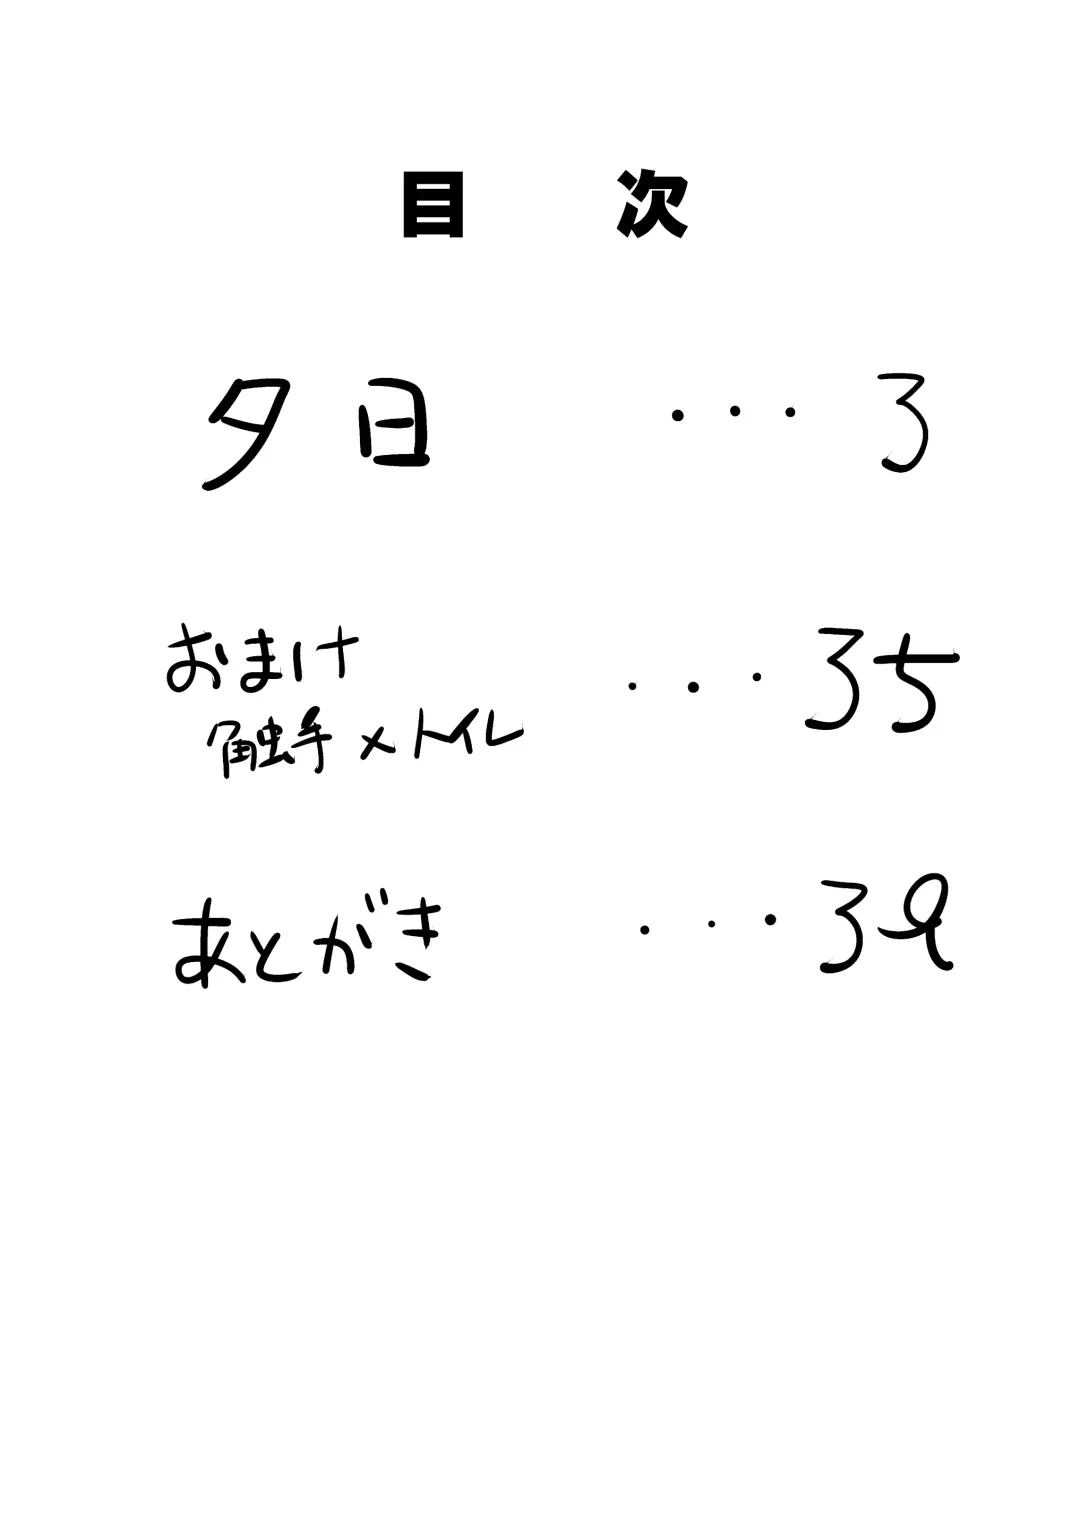 目次
夕日 ・・・ 3
おまけ
触手×トイレ ・・・ 35
あとがき ・・・ 39